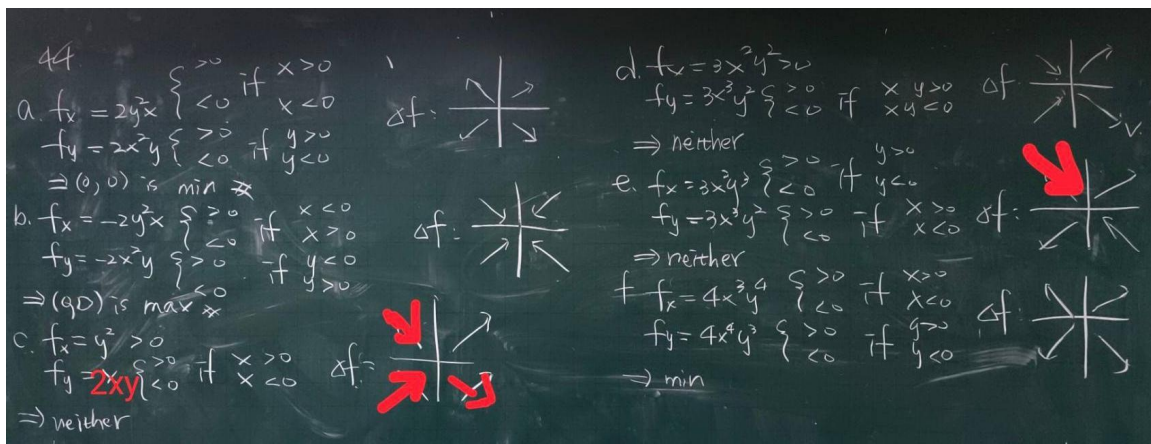 44.
a. fx = 2y²x { >0 <0 if x>0 x<0
fy = 2x²y { >0 <0 if y>0 y<0
⇒ (0,0) is min
Δf:
b. fx = -2y²x { >0 <0 if x<0 x>0
fy = -2x²y { >0 <0 if y<0 y>0
⇒ (0,0) is max
Δf:
c. fx = y² >0
fy = 2xy { >0 <0 if x>0 x<0
Δf:
⇒ neither
d. fx = 3x²y² >0
fy = 3x³y² { >0 <0 if x y>0 x y<0
Δf:
⇒ neither
e. fx = 3x²y³ { >0 <0 if y>0 y<0
fy = 3x³y² { >0 <0 if x>0 x<0
Δf:
⇒ neither
f fx = 4x³y⁴ { >0 <0 if x>0 x<0
fy = 4x⁴y³ { >0 <0 if y>0 y<0
Δf:
⇒ min